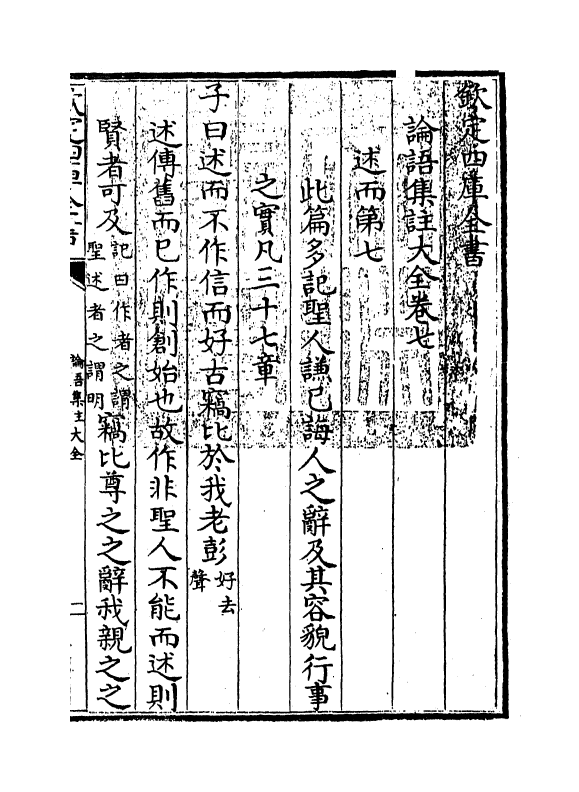 欽定四庫全書
論語集註大全卷七
述而第七
此篇多記聖人謙己誨人之辭及其容貌行事
之實凡三十七章
子曰述而不作信而好古竊比於我老彭好去聲
述傳舊而已作則創始也故作非聖人不能而述則
賢者可及記曰作者之謂聖述者之謂明竊比尊之之辭我親之之
欽定四庫全書
論語集註大全